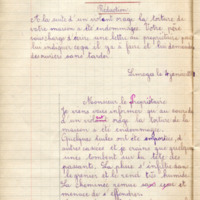 Rédaction
A la suite d'un violent orage la toiture de
votre maison a été endommagée. Votre père
vous charge d'écrire une lettre au propriétaire pour
lui indiquer ce qu'il y a à faire et lui demander
des ouvriers sans tarder.
Limoges le
Monsieur le Propriétaire
Je viens vous informer que au cours
d'un violent orage la toiture de la
maison a été endommagée.
Quelques tuiles ont été
autres cassées et je crains que quelques
unes tombent sur la tête des
passants. La pluie s'infiltre
le grenier et le rend très humide.
La cheminée
menace de s'effondrer